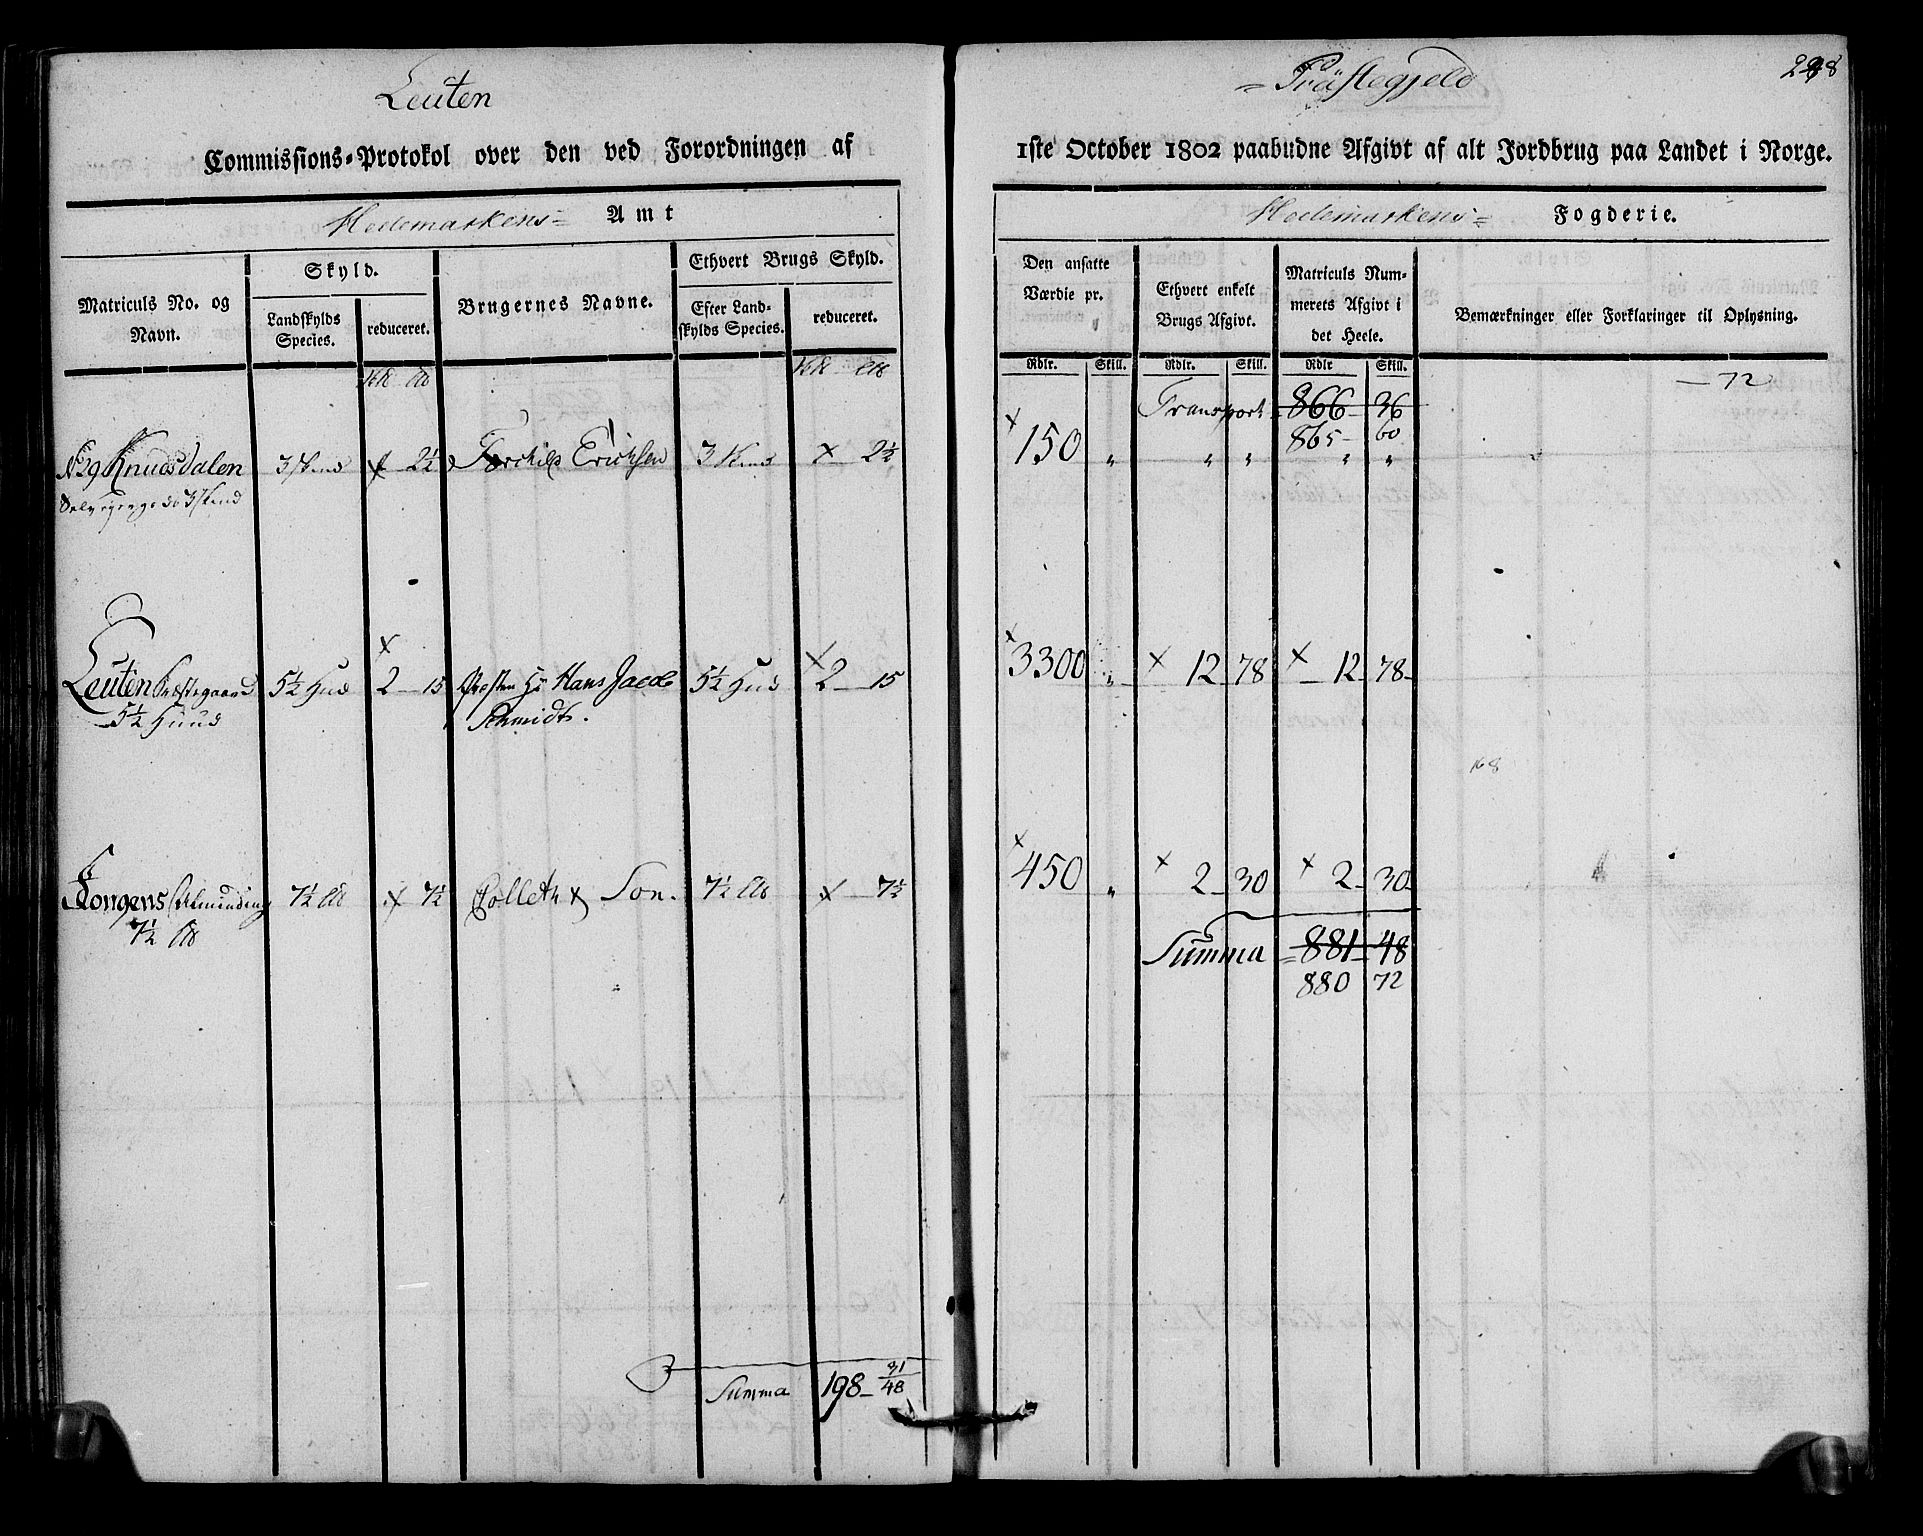 Leuten
= Præstegjeld
248
Commissions-Protokol over den ved Forordningen af
1ste October 1802 paabudne Afgivt af alt Jordbrug paa Landet i Norge.
Hedemarkens= Amt
Hedemarkens= Fogderie.
Matriculs No. og Navn.
Skyld.
Landskylds Species.
reduceret.
Brugernes Navne.
Ethvert Brugs Skyld.
Efter Landskylds Species.
reduceret.
Den ansatte Værdie pr.
Ethvert enkelt Brugs Afgivt.
Matriculs Nummerets Afgivt i det Heele.
Bemærkninger eller Forklaringer til Oplysning.
Rdlr. Skill. Rdlr. Skill. Rdlr Skill.
— 72
Transport 866 - 36
865 - 60
No 29 Knudsdalen 3 Skind x 2½ Torchild Erichsen 3 Skind x 2½ x 150 " " " " "
Selveyergods 3 Skind
Leuten Præstegaard 5½ Hud x 2 - 15 Præsten Hr Hans Jacob 5½ Hud x 2 - 15 x 3300 " x 12 - 78 x 12 - 78
5½ Huud Schmidt.
168
Kongens Alminding 7½ x 7½ Collett & Son. 7½ x 7½ x 450 " x 2 - 30 x 2 - 30
7½
Summa = 881 - 48
880 72
Summa 198 - 31/48